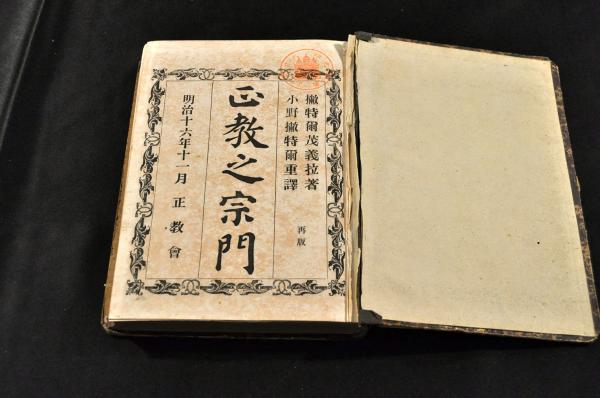 撇特爾茂義拉著
小野撇特爾重譯
再版
正教之宗門
明治十六年十一月 正教會